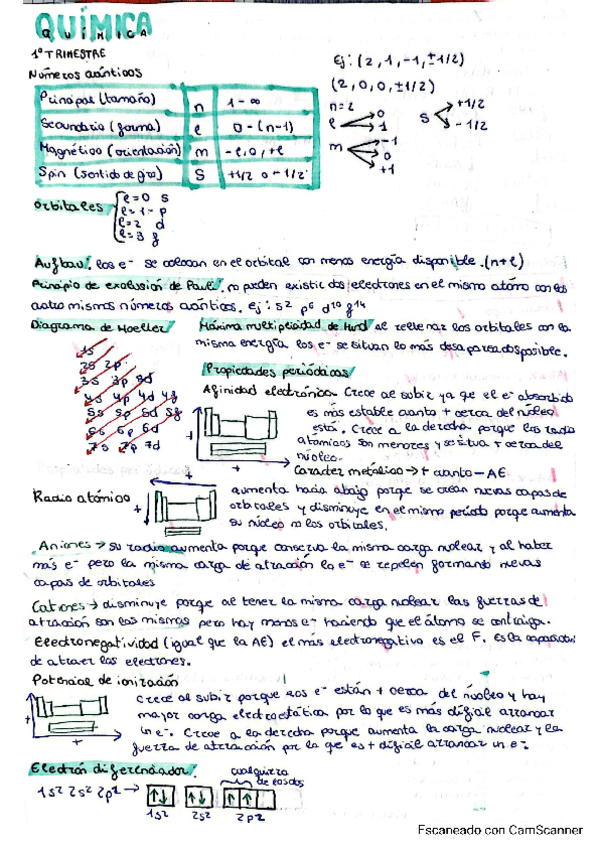 QUÍMICA
QUÍMICA
1º TRIMESTRE
Números cuánticos
Principal (tamaño) n 1-∞
Secundario (forma) l 0-(n-1)
Magnético (orientación) m -l, 0, +l
Spin (sentido de giro) s +1/2 o -1/2
Ej: (2, 1, -1, ±1/2)
(2, 0, 0, ±1/2)
n=2
l 0
1
m -1
0
+1
s +1/2
-1/2
Orbitales
l=0 s
l=1 - p
l=2 d
l=3 f
Aufbau: los e⁻ se colocan en el orbital con menos energía disponible. (n+l)
Principio de exclusión de Pauli: no pueden existir dos electrones en el mismo átomo con los
cuatro mismos números cuánticos. ej: s² p⁶ d¹⁰ f¹⁴
Diagrama de Moeller
1s
2s 2p
3s 3p 3d
4s 4p 4d 4f
5s 5p 5d 5f
6s 6p 6d
7s 7p 7d
Máxima multiplicidad de Hund al rellenar los orbitales con la
misma energía los e⁻ se situan lo más desapareados posible.
Propiedades periódicas
Afinidad electrónica Crece al subir ya que el e⁻ absorbido
es más estable cuanto + cerca del núcleo
está. Crece a la derecha porque los radio
atómicos son menores y se situa + cerca del
núcleo.
+
+
Caracter metálico → + cuanto - AE
Radio atómico
+
+
aumenta hacia abajo porque se crean nuevas capas de
orbitales y disminuye en el mismo período porque aumenta
su núcleo no los orbitales.
Aniones → su radio aumenta porque conserva la misma carga nuclear y al haber
más e⁻ pero la misma carga de atracción los e⁻ se repelen formando nuevas
capas de orbitales
Cationes → disminuye porque al tener la misma carga nuclear las fuerzas de
atracción son las mismas pero hay menos e⁻ haciendo que el átomo se contraiga.
Electronegatividad (igual que la AE) el más electronegativo es el F. Es la capacidad
de atraer los electrones.
Potencial de ionización
+
+
Crece al subir porque los e⁻ están + cerca del núcleo y hay
mayor carga electroestática por lo que es más difícil arrancar
un e⁻. Crece a la derecha porque aumenta la carga nuclear y la
fuerza de atracción por lo que es + difícil arrancar un e⁻
Electrón diferenciador:
cualquiera
de esos dos
1s² 2s² 2p² →
1s² 2s² 2p²
Escaneado con CamScanner